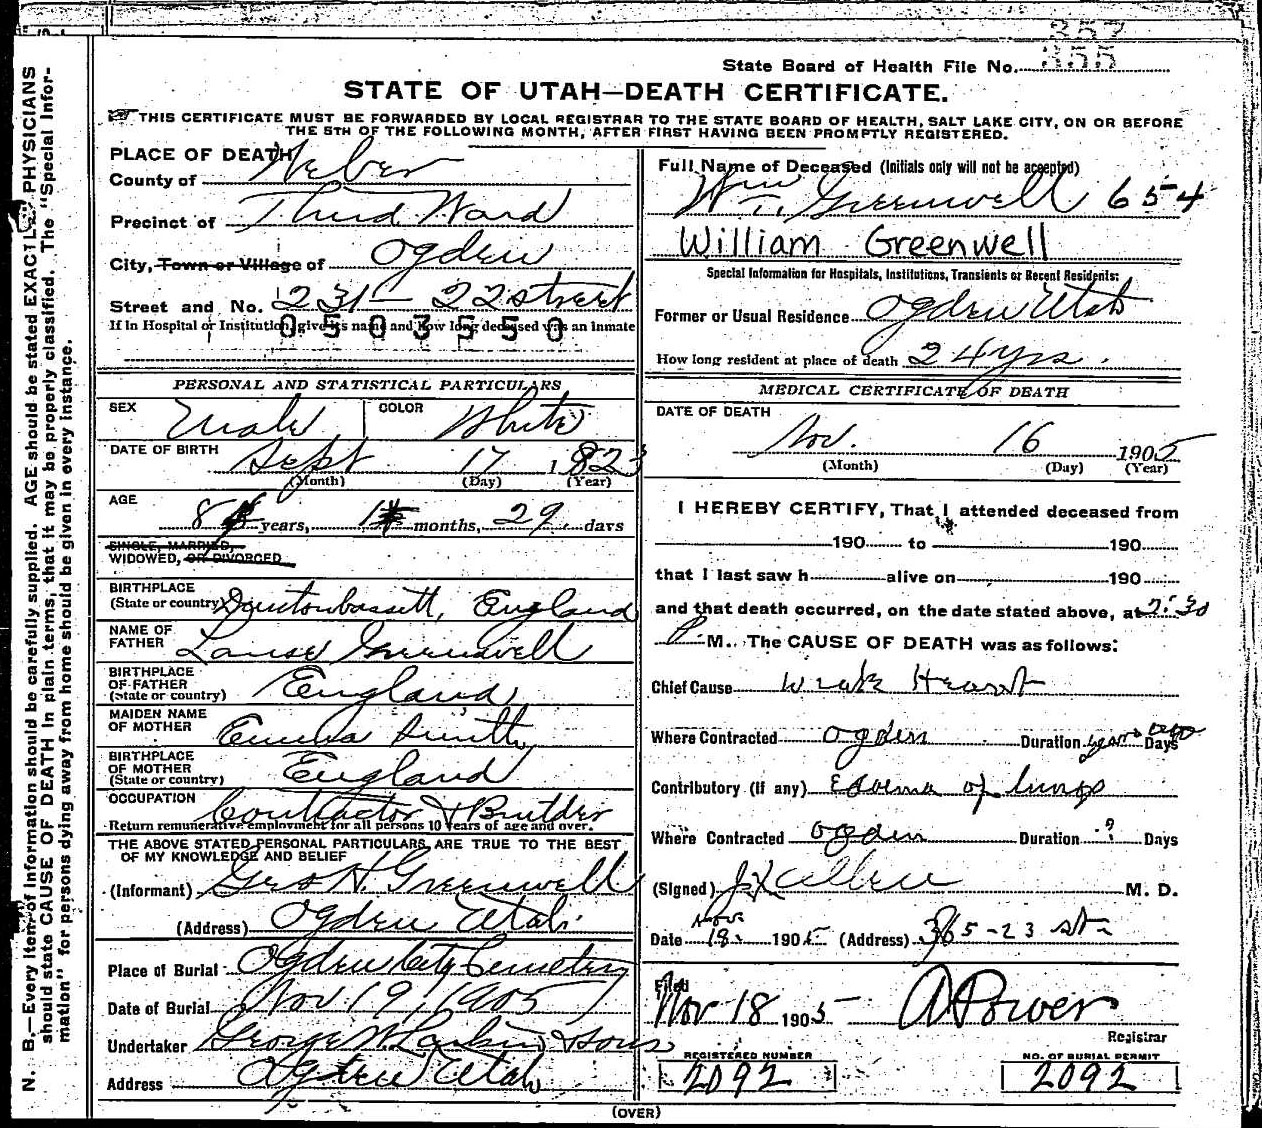 357
355
State Board of Health File No.
STATE OF UTAH—DEATH CERTIFICATE.
THIS CERTIFICATE MUST BE FORWARDED BY LOCAL REGISTRAR TO THE STATE BOARD OF HEALTH, SALT LAKE CITY, ON OR BEFORE
THE 5TH OF THE FOLLOWING MONTH, AFTER FIRST HAVING BEEN PROMPTLY REGISTERED.
N. B.—Every item of information should be carefully supplied. AGE should be stated EXACTLY. PHYSICIANS
should state CAUSE OF DEATH in plain terms, that it may be properly classified. The "Special Infor-
mation" for persons dying away from home should be given in every instance.
PLACE OF DEATH
County of Weber
Precinct of Third Ward
City, Town or Village of Ogden
Street and No. 231 - 22 street
If in Hospital or Institution, give its name and how long deceased was an inmate
0503550
PERSONAL AND STATISTICAL PARTICULARS
SEX Male COLOR White
DATE OF BIRTH Sept 17 1823
(Month) (Day) (Year)
AGE 8 years, 1 months, 29 days
SINGLE, MARRIED,
WIDOWED, OR DIVORCED
BIRTHPLACE
(State or country) England
NAME OF
FATHER Greenwell
BIRTHPLACE
OF FATHER
(State or country) England
MAIDEN NAME
OF MOTHER Smith
BIRTHPLACE
OF MOTHER
(State or country) England
OCCUPATION Contractor & Builder
Return remunerative employment for all persons 10 years of age and over.
THE ABOVE STATED PERSONAL PARTICULARS ARE TRUE TO THE BEST
OF MY KNOWLEDGE AND BELIEF
(Informant) Geo H. Greenwell
(Address) Ogden Utah
Place of Burial Ogden City Cemetery
Date of Burial Nov 19, 1905
Undertaker George W. Larkin & Sons
Address Ogden Utah
Full Name of Deceased (Initials only will not be accepted)
Wm Greenwell 654
William Greenwell
Special Information for Hospitals, Institutions, Transients or Recent Residents:
Former or Usual Residence Ogden Utah
How long resident at place of death 24 yrs.
MEDICAL CERTIFICATE OF DEATH
DATE OF DEATH
Nov. 16 1905
(Month) (Day) (Year)
I HEREBY CERTIFY, That I attended deceased from
190 to 190
that I last saw h alive on 190
and that death occurred, on the date stated above, at 2:30
P M. The CAUSE OF DEATH was as follows:
Chief Cause Weak Heart
Where Contracted Ogden Duration years Days
Contributory (If any) Edema of lungs
Where Contracted Ogden Duration ? Days
(Signed) M. D.
Date Nov 18 1905 (Address) 365-23 st
Filed
Nov 18 1905 A Power
Registrar
REGISTERED NUMBER
2092
NO. OF BURIAL PERMIT
2092
(OVER)